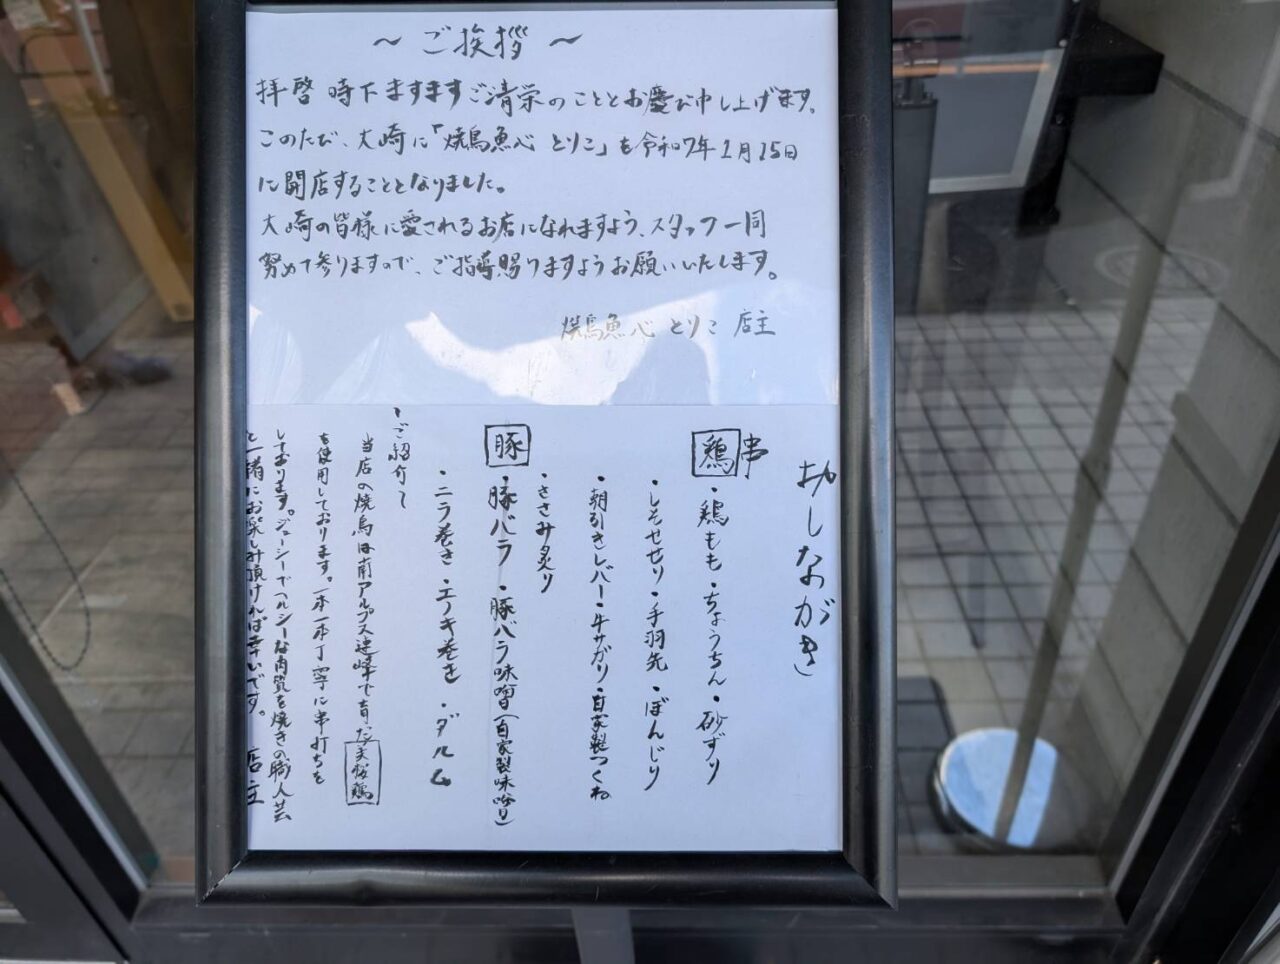 ～ ご挨拶 ～
拝啓 時下ますますご清栄のこととお慶び申し上げます。
このたび、大崎に「焼鳥魚心 とりこ」を令和7年1月15日
に開店することとなりました。
大崎の皆様に愛されるお店になれますよう、スタッフ一同
努めて参りますので、ご指導賜りますようお願いいたします。
焼鳥魚心 とりこ 店主
おしながき
串
鶏 ・鶏もも ・ちょうちん ・砂ずり
・しそせせり ・手羽先 ・ぼんじり
・朝引きレバー ・牛サガリ ・自家製つくね
・ささみ炙り
豚 ・豚バラ ・豚バラ味噌(自家製味噌)
・ニラ巻き ・エノキ巻き ・ダルム
～ご紹介～
当店の焼鳥は南アルプス連峰で育った美桜鶏
を使用しております。一本一本丁寧に串打ちを
しております。ジューシーでヘルシーな肉質を焼きの職人芸
と一緒にお楽しみ頂ければ幸いです。 店主